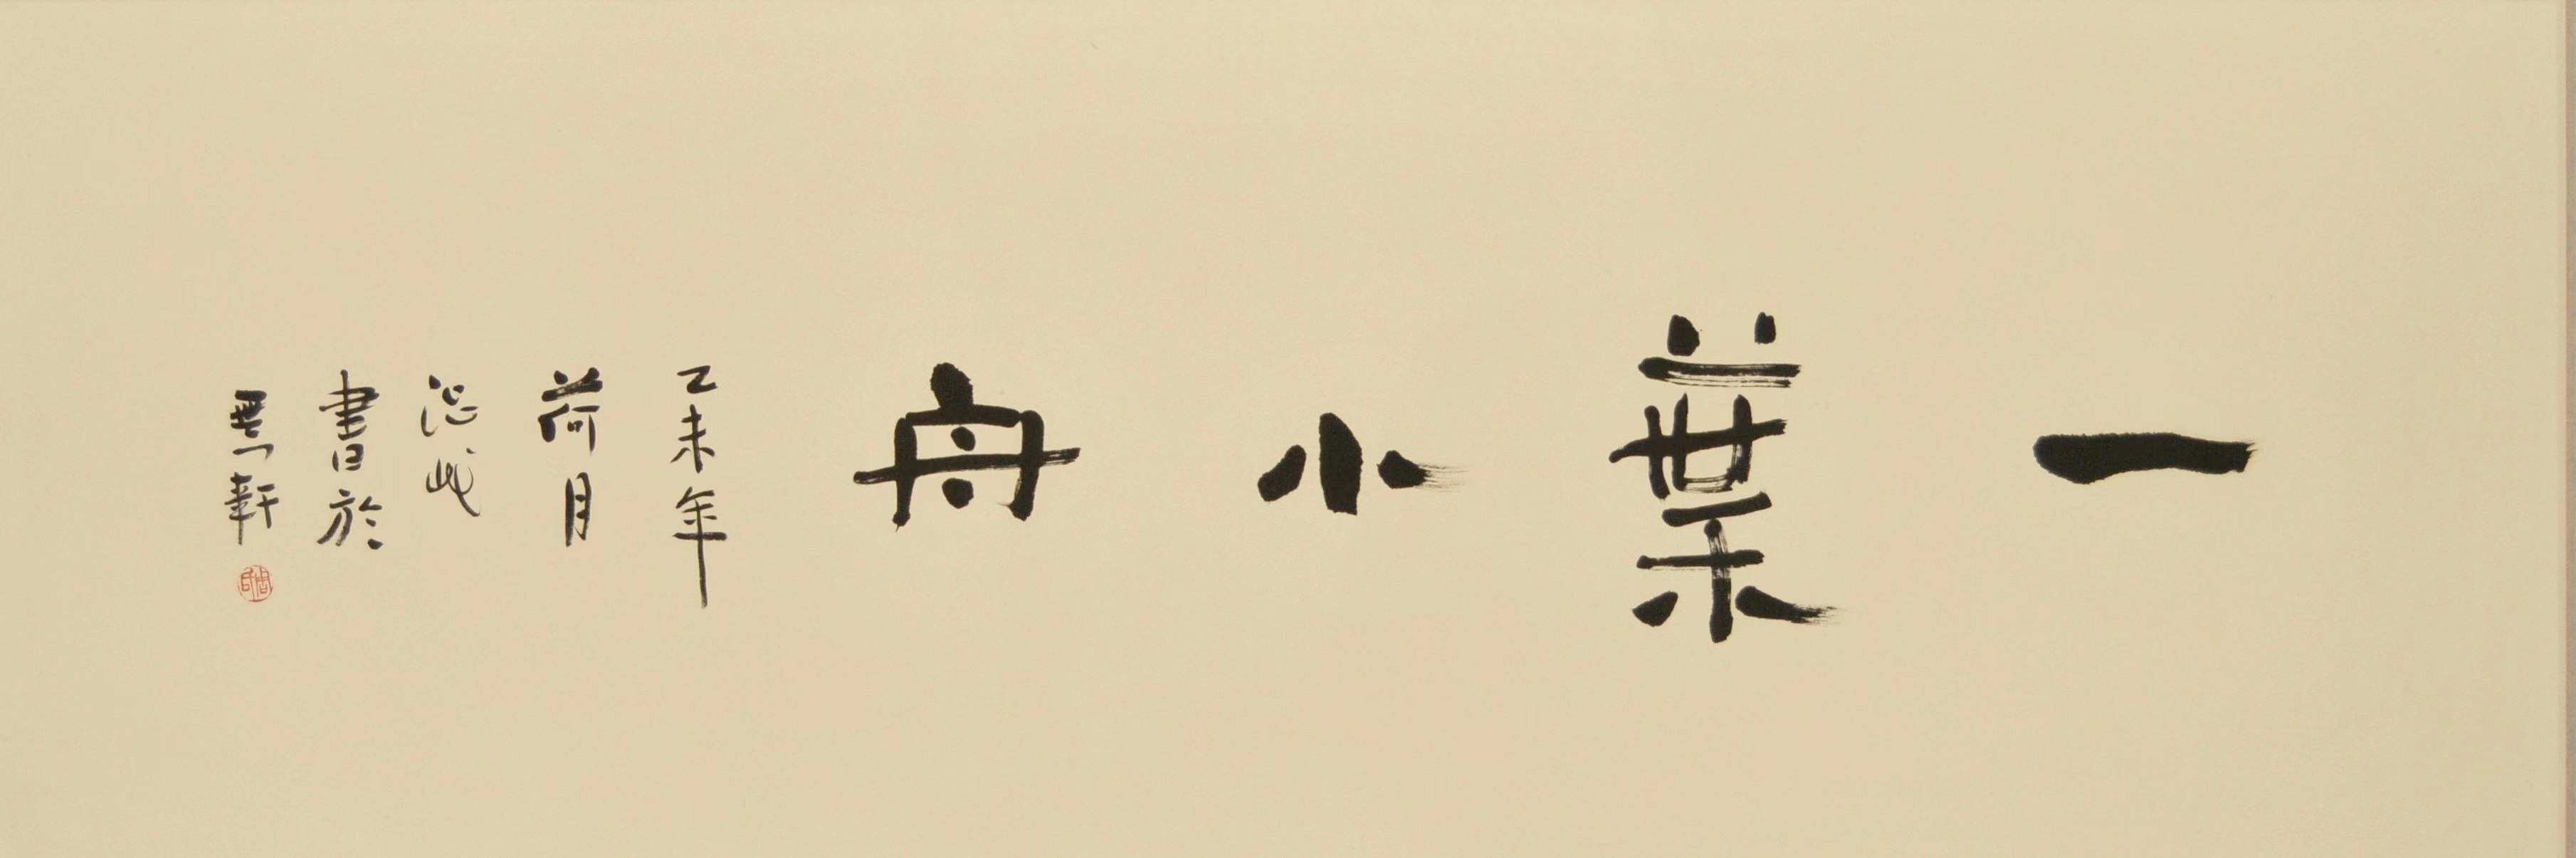 一葉小舟
乙未年
荷月
書於
軒